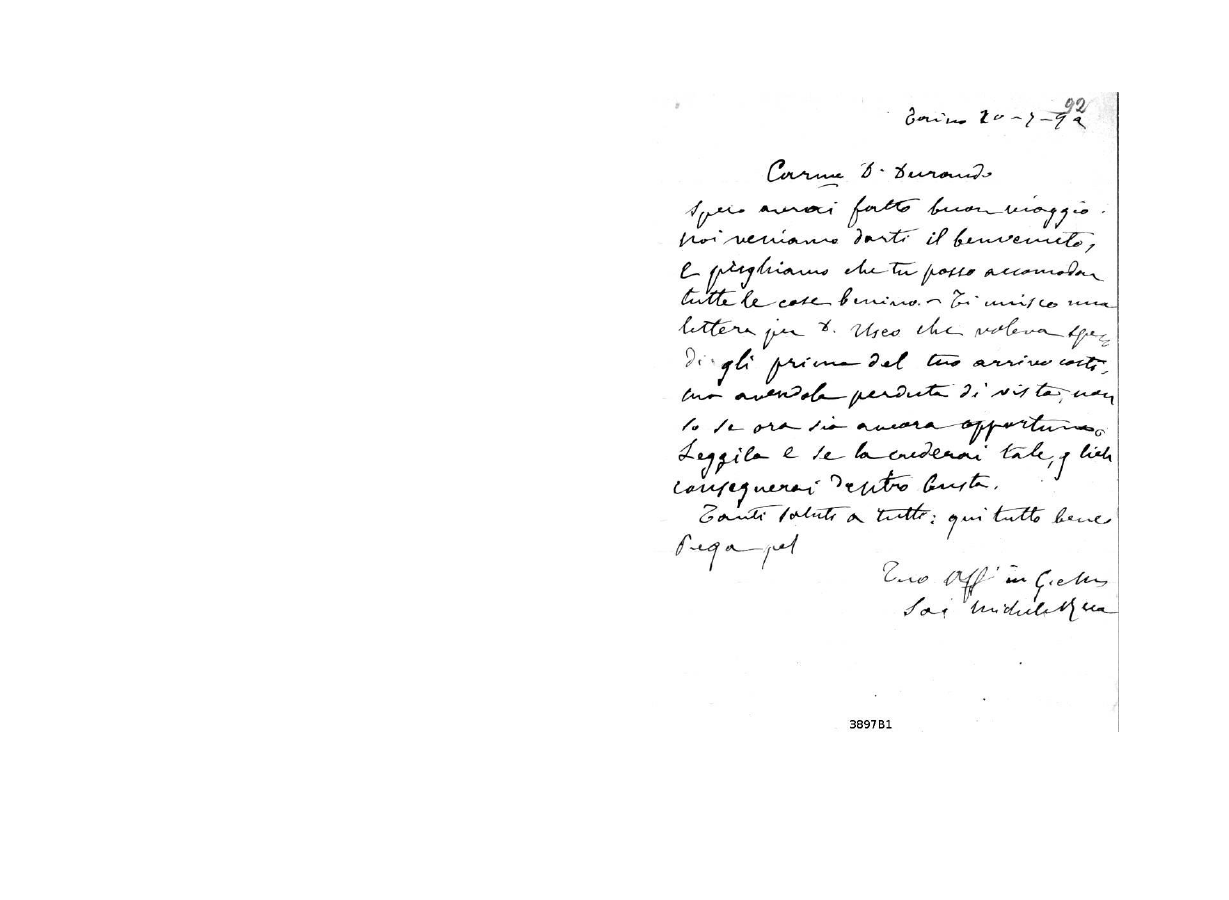 92
Torino 20-7-92
Car.me D. Durando
Spero avrai fatto buon viaggio.
Noi veniamo darti il benvenuto,
e preghiamo che tu possa accomodar
tutte le cose benino. - Ti unisco una
lettera per D. Useo che voleva spe
dirgli prima del tuo arrivo costì,
ma avendola perduta di vista, non
so se ora sia ancora opportuna.
Leggila e se la crederai tale, gliela
consegnerai dentro busta.
Tanti saluti a tutti: qui tutto bene
Prega pel
Tuo Aff in G. e M.
Sac Michele Rua
3897B1